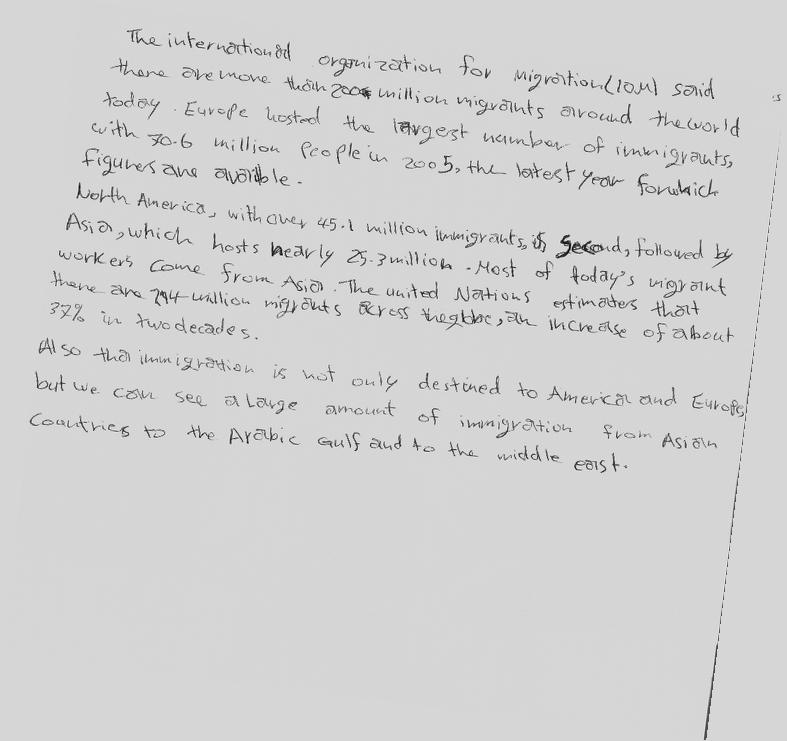 The international organization for migration (IOM) said
there are more than 200 million migrants around the world
today. Europe hosted the largest number of immigrants,
with 70.6 million people in 2005, the latest year for which
figures are available.
North America, with over 45.1 million immigrants, is second, followed by
Asia, which hosts nearly 25.3 million. Most of today's migrant
workers come from Asia. The united Nations estimates that
there are 214 million migrants across the globe, an increase of about
37% in two decades.
Also tha immigration is not only destined to America and Europe,
but we can see a large amount of immigration from Asian
Countries to the Arabic Gulf and to the middle east.